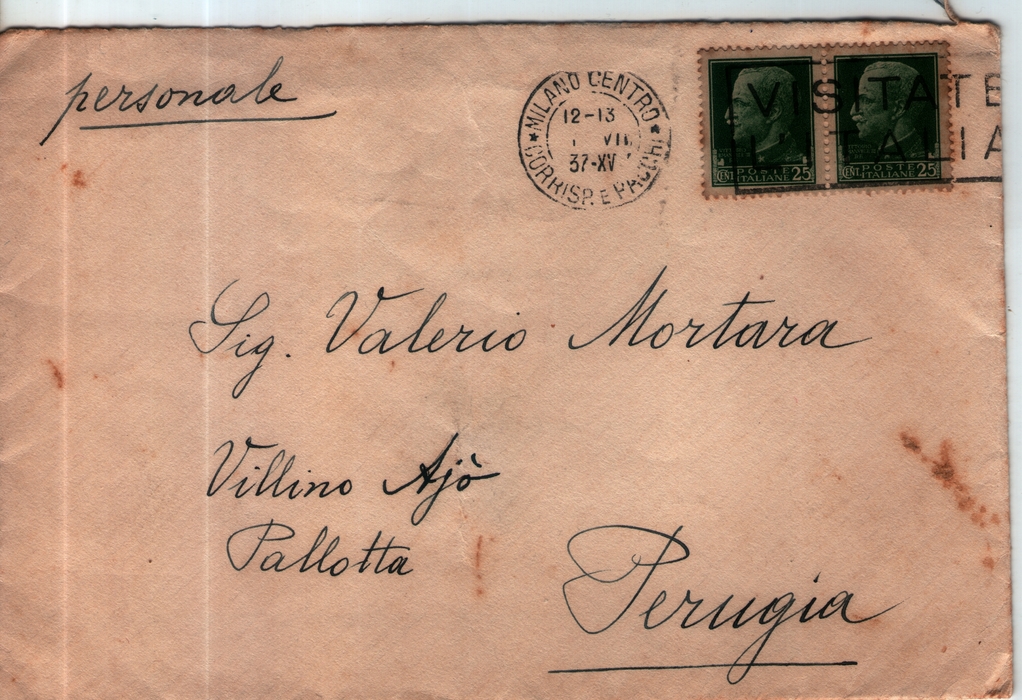 personale
MILANO CENTRO
12-13
VII
37-XV
CORRISP. E PACCHI
VISITATE
L'ITALIA
CENT POSTE ITALIANE 25
CENT POSTE ITALIANE 25
Sig. Valerio Mortara
Villino Ajò
Pallotta
Perugia